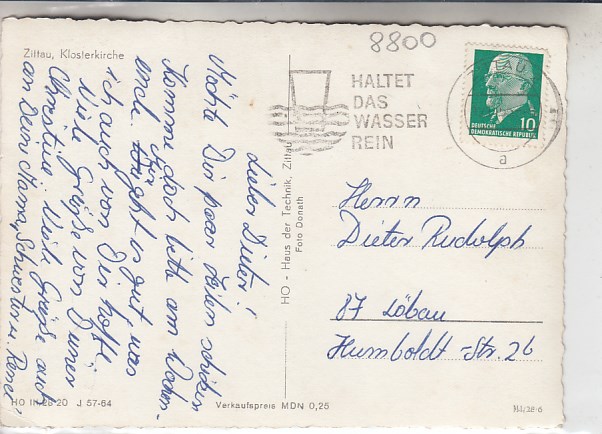 Zittau, Klosterkirche
8800
HALTET
DAS
WASSER
REIN
ZITTAU
a
10
DEUTSCHE
DEMOKRATISCHE REPUBLIK
Lieber Dieter!
Möchte Dir paar Zeilen schicken
Komme doch bitte am Wochen-
end. geht es gut, was
ich auch von Dir hoffe.
Viele Grüße von Deiner
Christina Viele Grüße auch
an Deine Mama, Schwester u.
HO - Haus der Technik, Zittau
Foto Donath
Herrn
Dieter Rudolph
87 Löbau
Humboldt-Str. 26
HO III 28-20 J 57-64
Verkaufspreis MDN 0,25